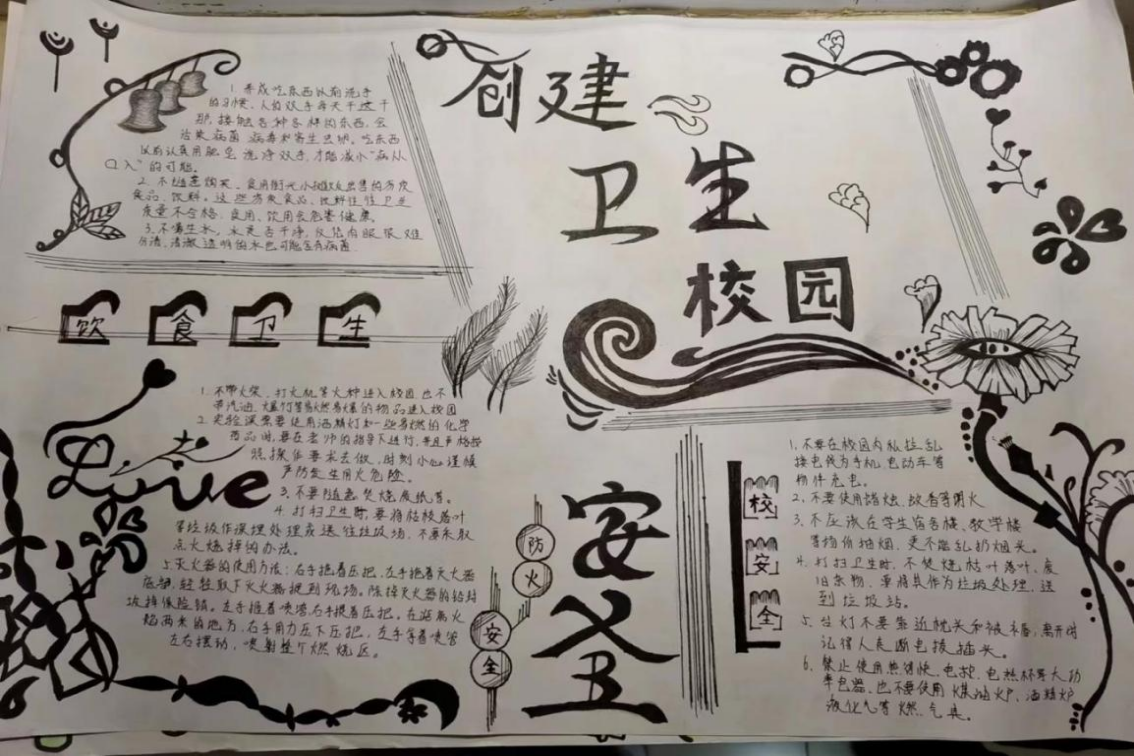 创建
卫生
校园
1. 养成吃东西以前洗手
的习惯，人的双手每天干这干
那，接触各种各样的东西，会
沾染病菌、病毒和寄生虫卵。吃东西
以前认真用肥皂洗净双手，才能减小“病从
口入”的可能。
2. 不随意购买、食用街头小摊贩出售的劣质
食品、饮料。这些劣质食品、饮料往往卫生
质量不合格，食用、饮用会危害健康
3. 不喝生水，水是否干净，仅凭肉眼很难
分清，清澈透明的水也可能含有病菌
饮食卫生
Love
1. 不带火柴、打火机等火种进入校园，也不
带汽油、爆竹等易燃易爆的物品进入校园
2. 实验课需要使用酒精灯和一些易燃的化学
药品时，要在老师的指导下进行，并且严格按
照操作要求去做，时刻小心谨慎
严防发生用火危险。
3. 不要随意焚烧废纸等。
4. 打扫卫生时，要将枯枝落叶
等垃圾作深埋处理或送往垃圾场，不要采取
点火烧掉的办法。
5. 灭火器的使用方法：右手握着压把，左手托着灭火器
底部，轻轻取下灭火器提到现场。除掉灭火器的铅封
拔掉保险销。左手握着喷管，右手提着压把。在距离火
焰两米的地方，右手用力压下压把，左手拿着喷管
左右摆动，喷射整个燃烧区。
防
火
安
全
安
全
校
安
全
1. 不要在校园内私拉乱
接电线为手机、电动车等
物件充电。
2. 不要使用蜡烛、蚊香等明火
3. 不应该在学生宿舍楼、教学楼
等场所抽烟，更不能乱扔烟头。
4. 打扫卫生时，不焚烧枯叶落叶、废
旧杂物，要将其作为垃圾处理，送
到垃圾站。
5. 台灯不要靠近枕头和被褥，离开时
记得人走断电拔插头。
6. 禁止使用热得快、电炉、电热杯等大功
率电器，也不要使用煤油炉、酒精炉
液化气等燃气具。